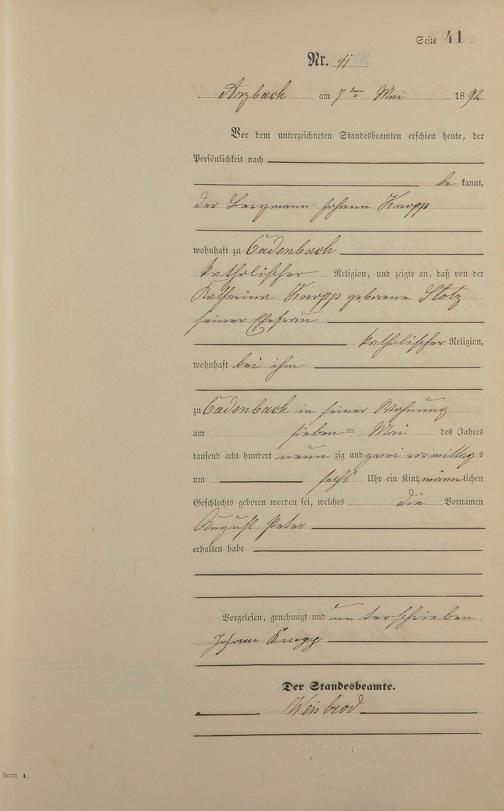 Seite 41
Nr. 41
Arzbach am 7ten Mai 1892
Vor dem unterzeichneten Standesbeamten erschien heute, der
Persönlichkeit nach
be kannt,
der Bergmann Johann Knopp
wohnhaft zu Cadenbach
katholischer Religion, und zeigte an, daß von der
Katharina Knopp geborene Stolz
seiner Ehefrau
katholischer Religion,
wohnhaft bei ihm
zu Cadenbach in seiner Wohnung
am sieben ten Mai des Jahres
tausend acht hundert neun zig und zwei vormittags
um sechs Uhr ein Kind männlichen
Geschlechts geboren worden sei, welches die Vornamen
August Peter
erhalten habe
Vorgelesen, genehmigt und unterschrieben
Johann Knopp
Der Standesbeamte.
Weisbrod
Form. A.